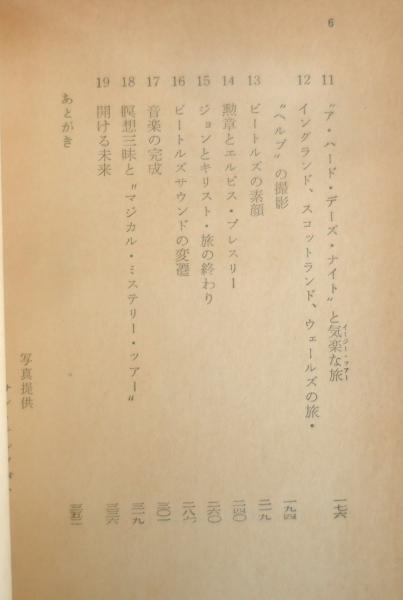 6
11 "ア・ハード・デーズ・ナイト"と気楽な旅 一七六
イージー・ツアー
12 イングランド、スコットランド、ウェールズの旅・
"ヘルプ"の撮影 一九四
13 ビートルズの素顔 二一九
14 勲章とエルビス・プレスリー 二四〇
15 ジョンとキリスト・旅の終わり 二六〇
16 ビートルズサウンドの変遷 二八七
17 音楽の完成 三〇一
18 瞑想三昧と"マジカル・ミステリー・ツアー" 三一九
19 開ける未来 三三六
あとがき 三五二
写真提供